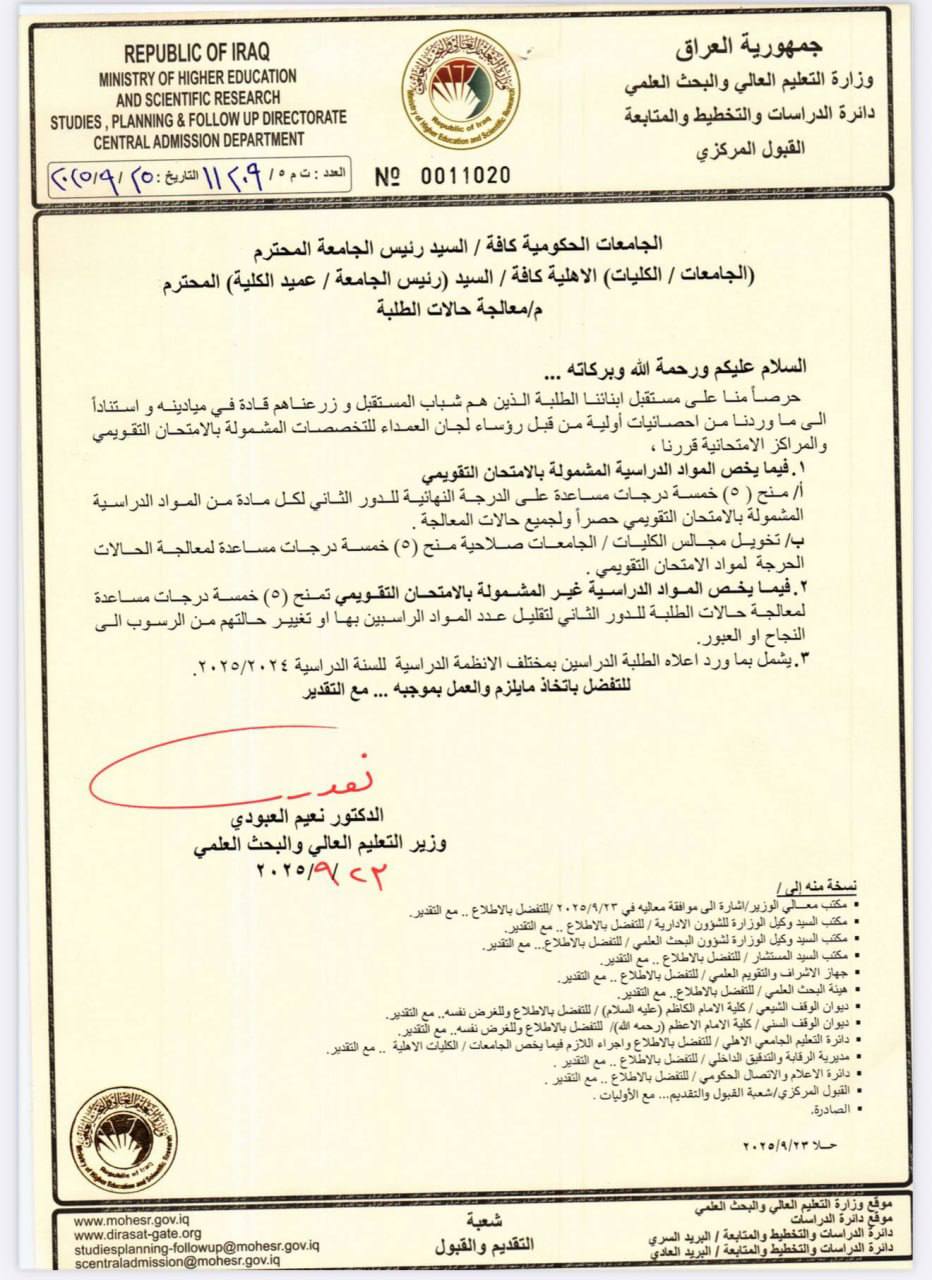 REPUBLIC OF IRAQ
MINISTRY OF HIGHER EDUCATION
AND SCIENTIFIC RESEARCH
STUDIES , PLANNING & FOLLOW UP DIRECTORATE
CENTRAL ADMISSION DEPARTMENT
جمهورية العراق
وزارة التعليم العالي والبحث العلمي
دائرة الدراسات والتخطيط والمتابعة
القبول المركزي
Republic of Iraq
Ministry of Higher Education and Scientific Research
العدد : ت م ٥/ ١١٢٠٩ التاريخ: ٢٥/ ٩/ ٢٠٢٥
Nº 0011020
الجامعات الحكومية كافة / السيد رئيس الجامعة المحترم
(الجامعات / الكليات) الاهلية كافة / السيد (رئيس الجامعة / عميد الكلية) المحترم
م/معالجة حالات الطلبة
السلام عليكم ورحمة الله وبركاته ...
حرصاً منا على مستقبل ابنائنا الطلبة الذين هم شباب المستقبل و زرعناهم قادة في ميادينه و استناداً
الى ما وردنا من احصائيات أولية من قبل رؤساء لجان العمداء للتخصصات المشمولة بالامتحان التقويمي
والمراكز الامتحانية قررنا ،
١. فيما يخص المواد الدراسية المشمولة بالامتحان التقويمي
أ/ منح ( ٥) خمسة درجات مساعدة على الدرجة النهائية للدور الثاني لكل مادة من المواد الدراسية
المشمولة بالامتحان التقويمي حصراً ولجميع حالات المعالجة .
ب/ تخويل مجالس الكليات / الجامعات صلاحية منح (٥) خمسة درجات مساعدة لمعالجة الحالات
الحرجة لمواد الامتحان التقويمي .
٢. فيما يخص المواد الدراسية غير المشمولة بالامتحان التقويمي تمنح (٥) خمسة درجات مساعدة
لمعالجة حالات الطلبة للدور الثاني لتقليل عدد المواد الراسبين بها او تغيير حالتهم من الرسوب الى
النجاح او العبور.
٣. يشمل بما ورد اعلاه الطلبة الدراسين بمختلف الانظمة الدراسية للسنة الدراسية ٢٠٢٥/٢٠٢٤.
للتفضل باتخاذ مايلزم والعمل بموجبه ... مع التقدير
الدكتور نعيم العبودي
وزير التعليم العالي والبحث العلمي
٢٣/ ٩/ ٢٠٢٥
نسخة منه إلى /
▪ مكتب معالي الوزير/اشارة الى موافقة معاليه في ٢٠٢٥/٩/٢٣ /للتفضل بالاطلاع .. مع التقدير.
▪ مكتب السيد وكيل الوزارة للشؤون الادارية / للتفضل بالاطلاع .. مع التقدير.
▪ مكتب السيد وكيل الوزارة لشؤون البحث العلمي / للتفضل بالاطلاع... مع التقدير.
▪ مكتب السيد المستشار / للتفضل بالاطلاع .. مع التقدير.
▪ جهاز الاشراف والتقويم العلمي / للتفضل بالاطلاع .. مع التقدير.
▪ هيئة البحث العلمي / للتفضل بالاطلاع.. مع التقدير.
▪ ديوان الوقف الشيعي / كلية الامام الكاظم (عليه السلام) / للتفضل بالاطلاع وللغرض نفسه.. مع التقدير.
▪ ديوان الوقف السني / كلية الامام الاعظم (رحمه الله)/ للتفضل بالاطلاع وللغرض نفسه.. مع التقدير.
▪ دائرة التعليم الجامعي الاهلي / للتفضل بالاطلاع واجراء اللازم فيما يخص الجامعات / الكليات الاهلية .. مع التقدير.
▪ مديرية الرقابة والتدقيق الداخلي / للتفضل بالاطلاع .. مع التقدير .
▪ دائرة الاعلام والاتصال الحكومي / للتفضل بالاطلاع .. مع التقدير .
▪ القبول المركزي/شعبة القبول والتقديم... مع الأوليات .
▪ الصادرة.
حـلا ٢٠٢٥/٩/٢٣
Republic of Iraq
Ministry of Higher Education and Scientific Research
موقع وزارة التعليم العالي والبحث العلمي
موقع دائرة الدراسات
دائرة الدراسات والتخطيط والمتابعة / البريد السري
دائرة الدراسات والتخطيط والمتابعة / البريد العادي
شعبة
التقديم والقبول
www.mohesr.gov.iq
www.dirasat-gate.org
studiesplanning-followup@mohesr.gov.iq
scentraladmission@mohesr.gov.iq